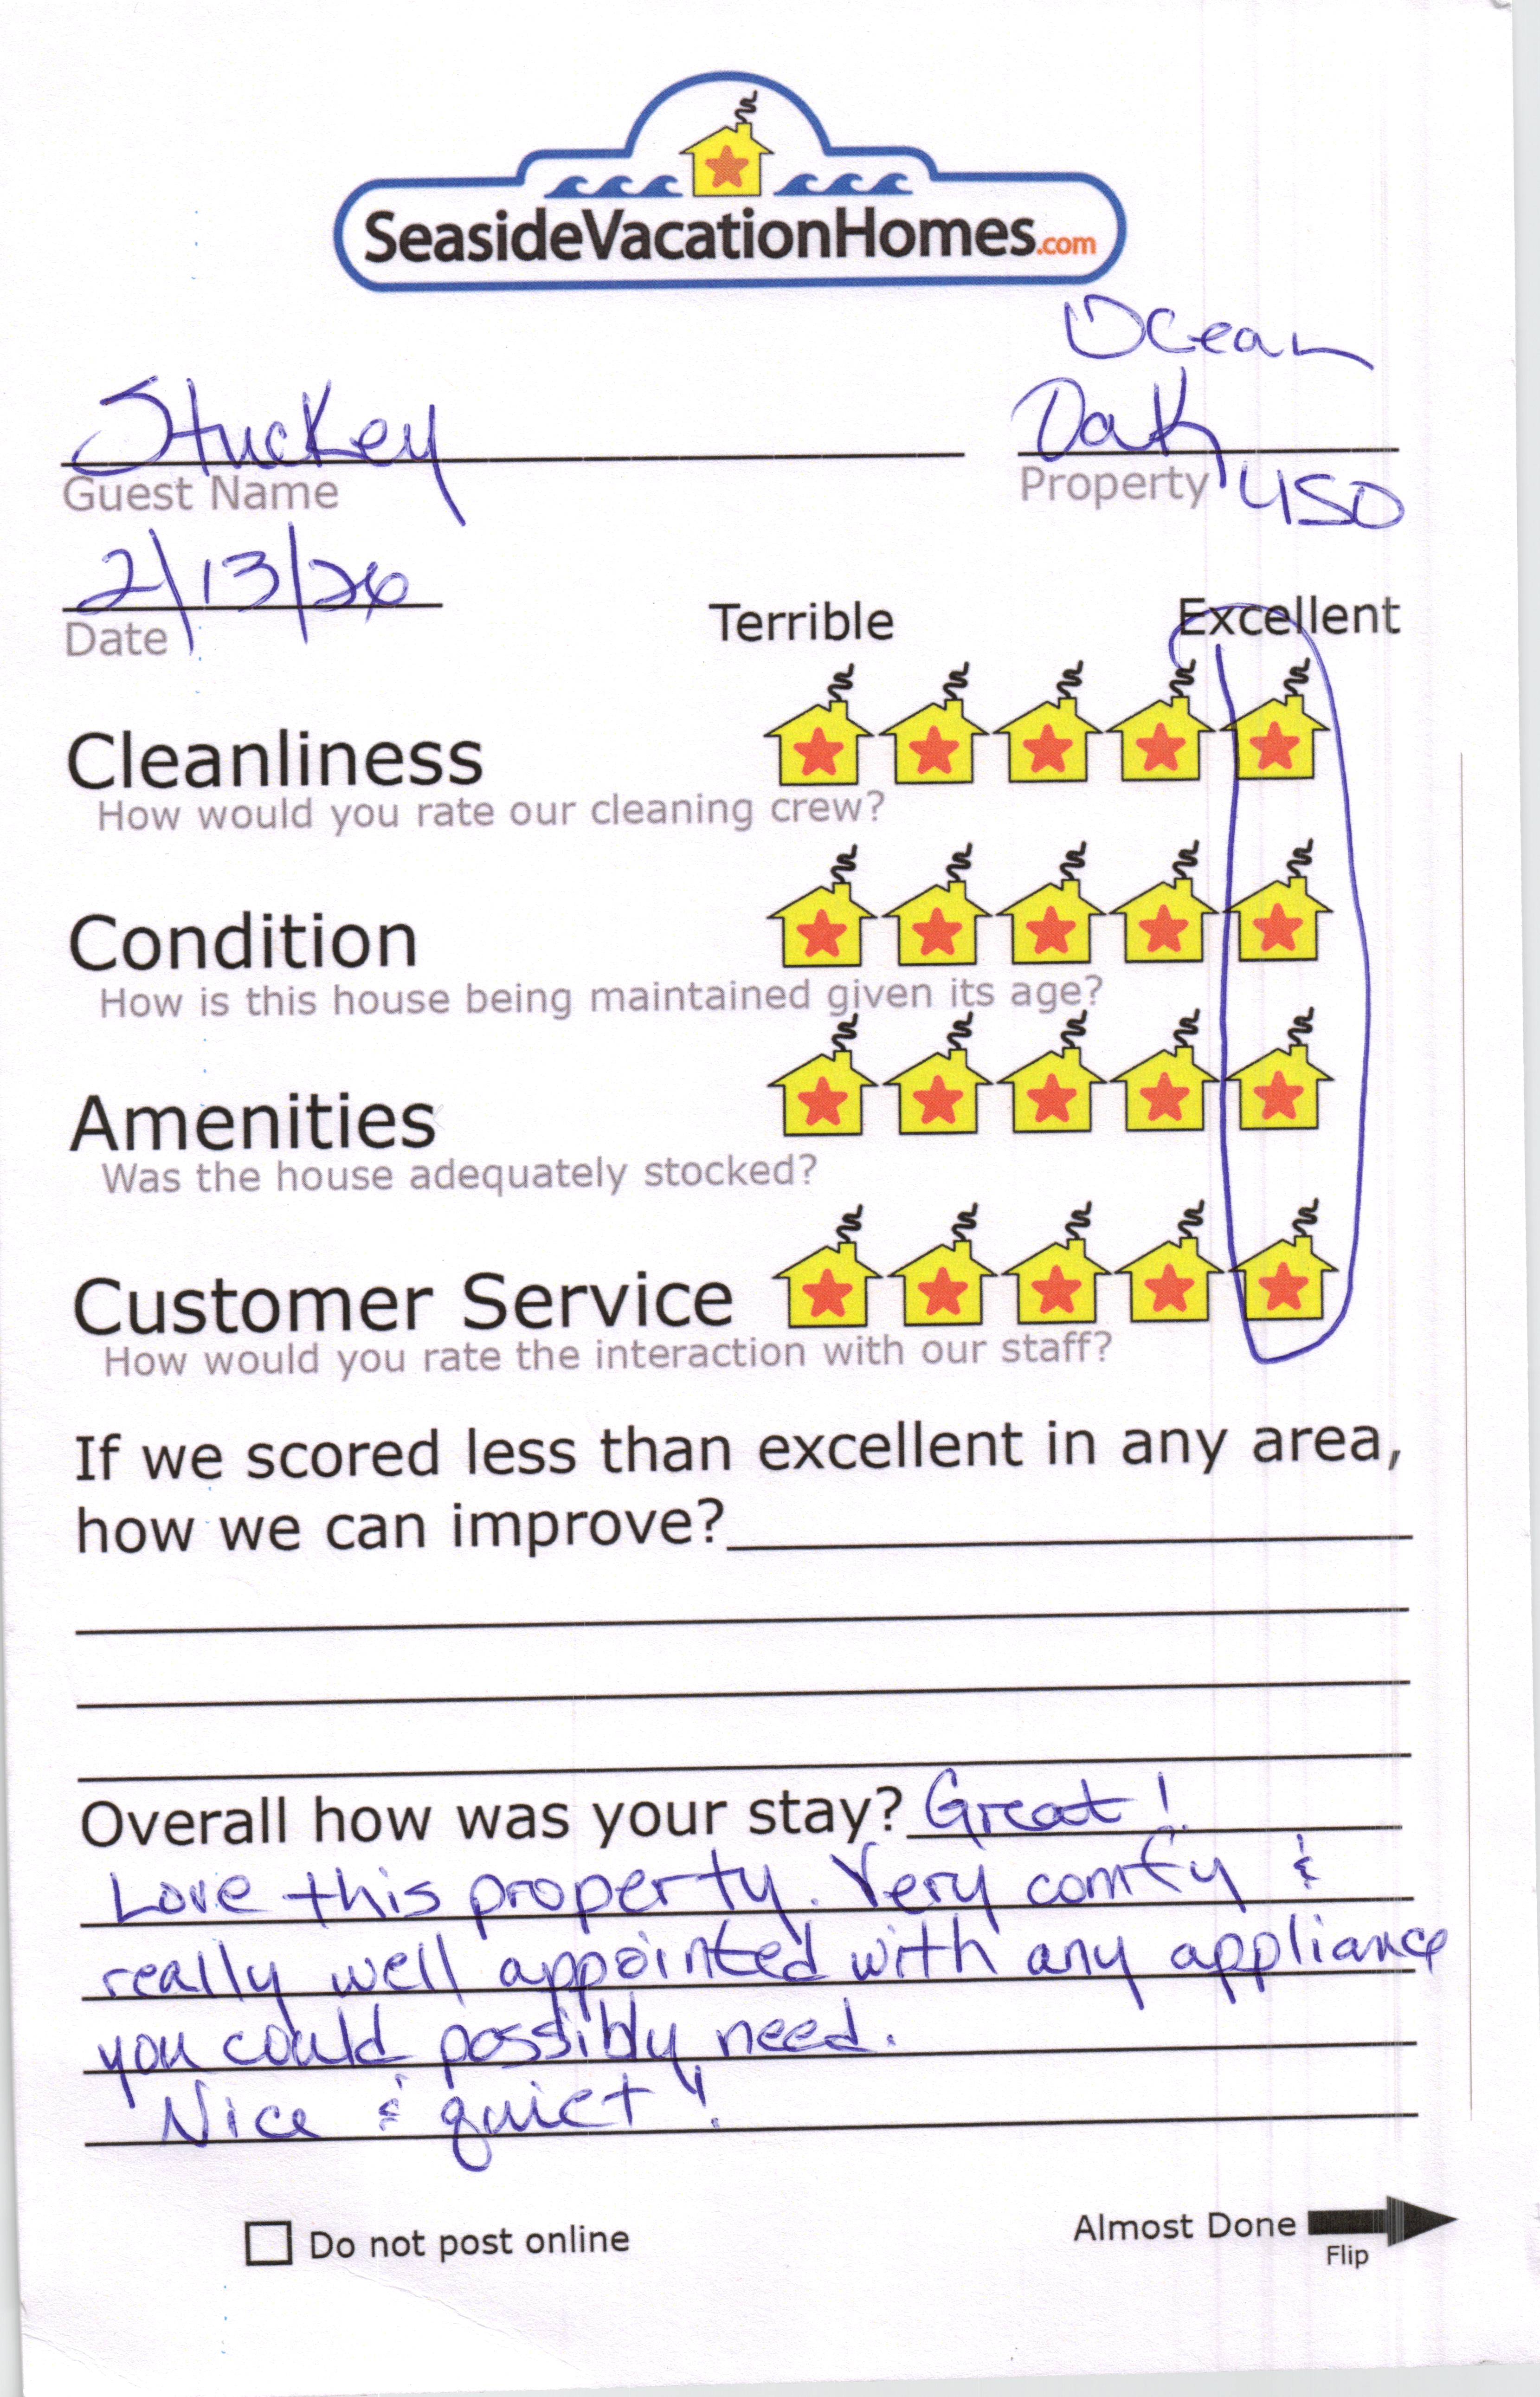 SeasideVacationHomes.com
Ocean
Stuckey Oak
Guest Name Property 450
2/13/26
Date
Terrible Excellent
Cleanliness
How would you rate our cleaning crew?
Condition
How is this house being maintained given its age?
Amenities
Was the house adequately stocked?
Customer Service
How would you rate the interaction with our staff?
If we scored less than excellent in any area,
how we can improve?
Overall how was your stay? Great!
Love this property. Very comfy &
really well appointed with any appliance
you could possibly need.
Nice & quiet!
Do not post online
Almost Done
Flip